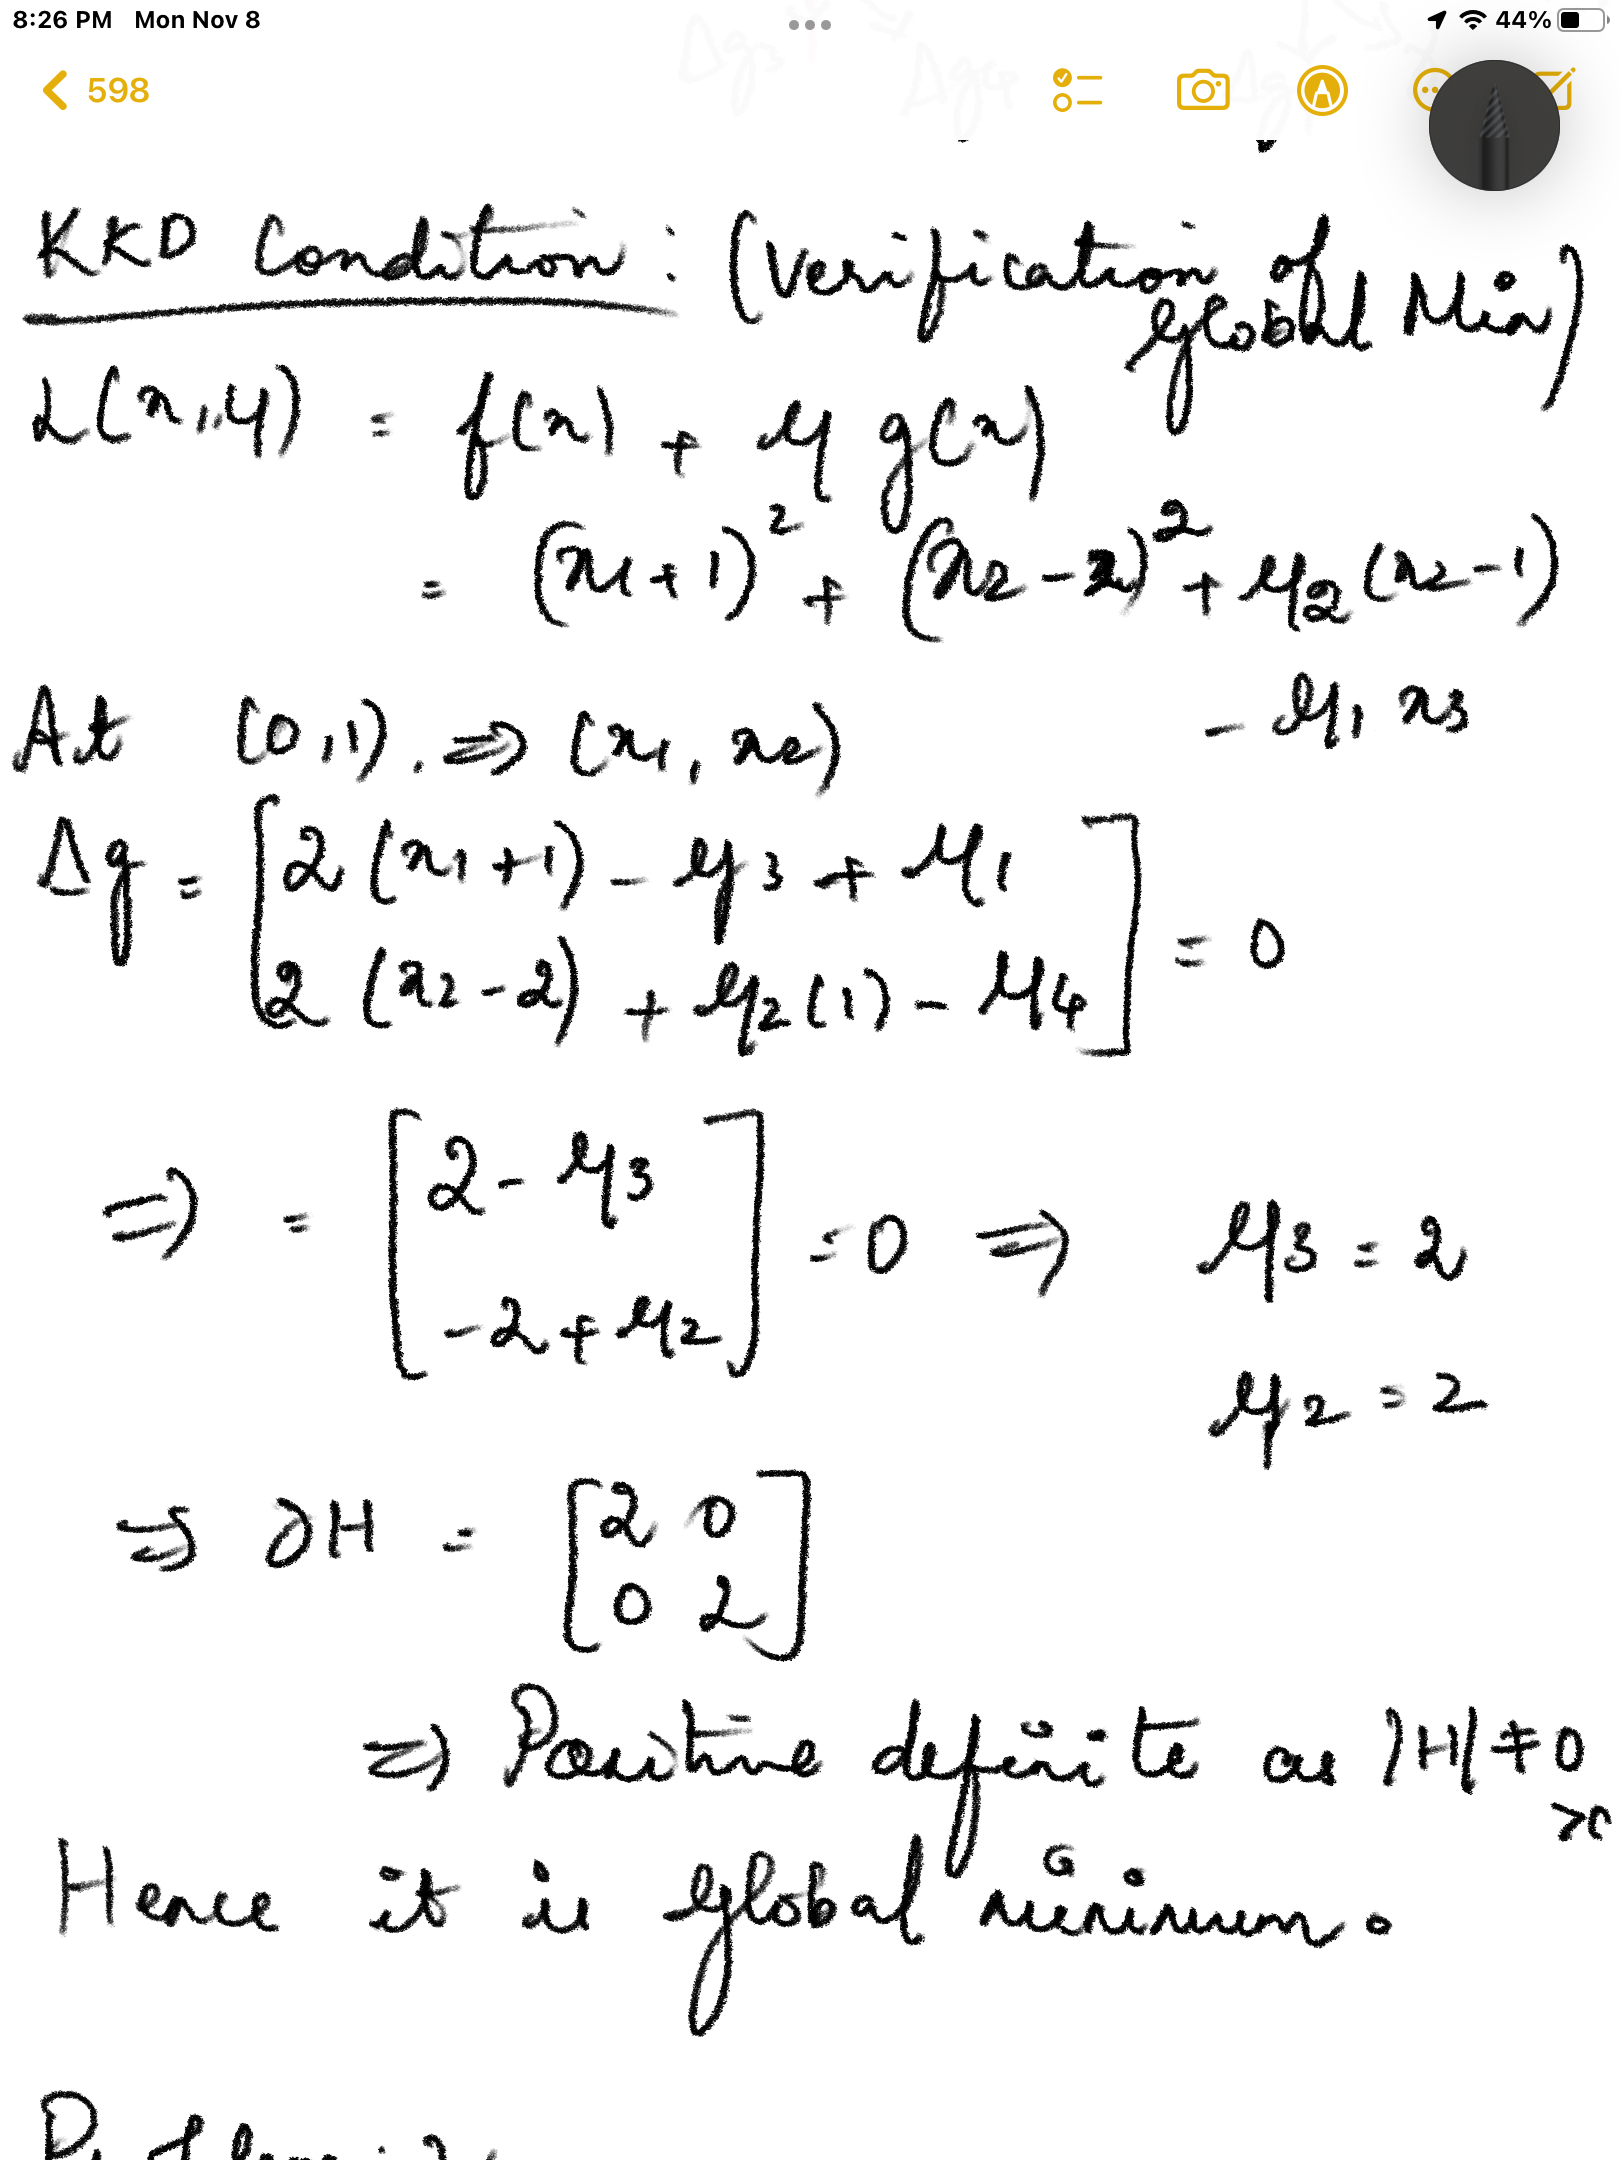 8:26 PM Mon Nov 8
44%
598
KKD Condition : (Verification of
global Min)
L(x, μ) = f(x) + μ g(x)
= (x1+1)² + (x2-2)² + μ2 (x2-1)
- μ1 x3
At (0,1). ⇒ (x1, x2)
Δg = [2 (x1+1) - μ3 + μ1
2 (x2-2) + μ2(1) - μ4] = 0
⇒ = [2 - μ3
-2 + μ2] = 0 ⇒ μ3 = 2
μ2 = 2
⇒ ∂H = [2 0
0 2]
⇒ Positive definite as |H| ≠ 0
>0
Hence it is global minimum.